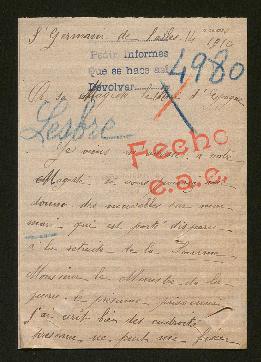 St Germain de
1916
Pedir Informes
Que se haga así
Devolver
4980
A sa Majesté d'Espagne
Lesbre
Fecho
e.a.e.
Je viens à votre
Majesté
donner des nouvelles sur mon
mari qui est porté disparu
à la retraite de la
Monsieur le Ministre de la
guerre le présume prisonnier
j'ai écrit bien des endroits
personne ne peut me fixer